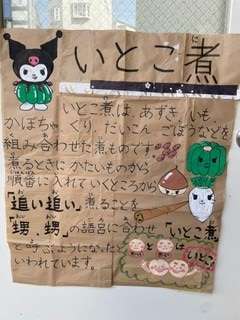 いとこ煮
いとこ煮は、あずき、いも、
かぼちゃ、くり、だいこん、ごぼうなどを
組み合わせた煮ものです。
煮るときにかたいものから
順番に入れていくところから
「追い追い」煮ることを
「甥、甥」の語呂に合わせ
「いとこ煮」
と呼ぶようになったと
いわれています。
と
は
いとこ